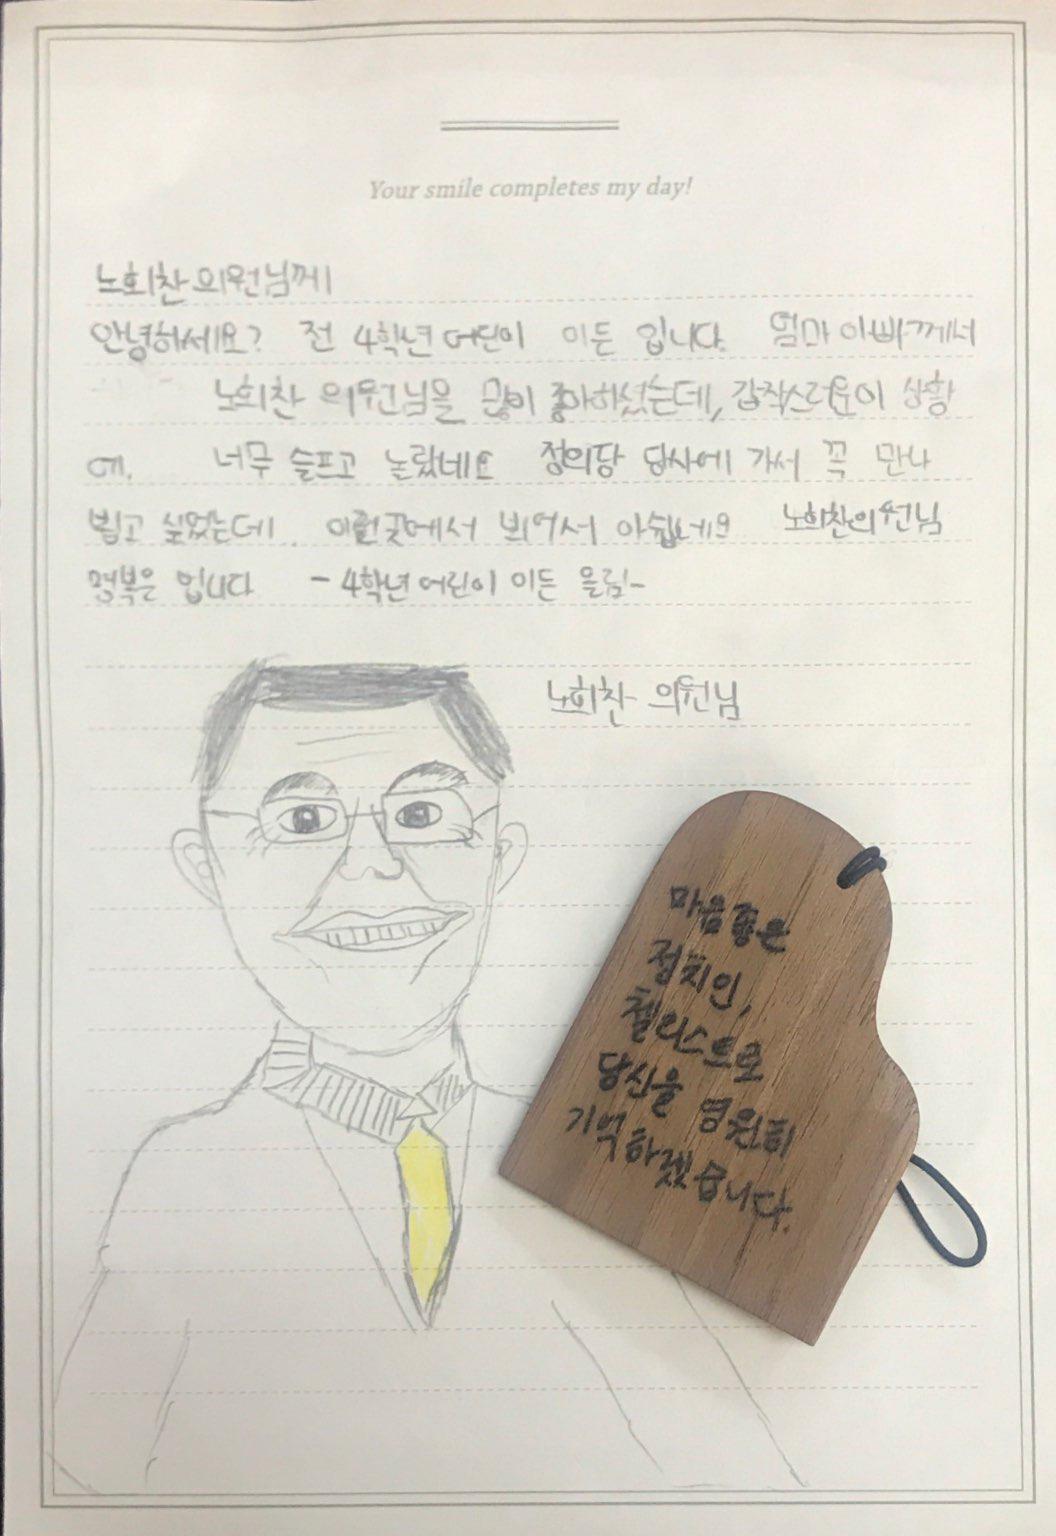 Your smile completes my day!
노회찬 의원님께
안녕하세요? 전 4학년 어린이 이든 입니다. 엄마 아빠께서
노회찬 의원님을 많이 좋아하셨는데, 갑작스러운 이 상황
에. 너무 슬프고 놀랐네요 정의당 당사에 가서 꼭 만나
뵙고 싶었는데. 이런곳에서 뵈어서 아쉽네요 노회찬의원님
명복을 빕니다 - 4학년 어린이 이든 올림-
노회찬 의원님
마음 좋은
정치인,
첼리스트로
당신을 영원히
기억하겠습니다.